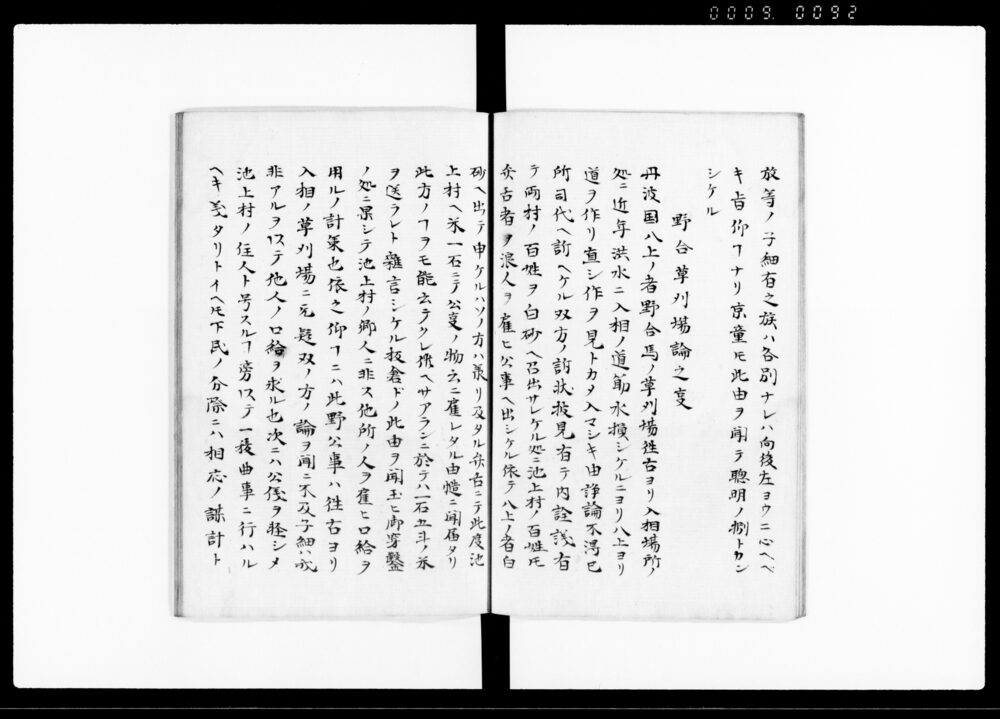 0009. 0092
放等ノ子細有之族ハ各別ナレハ向後左ヨウニ心ヘベ
キ旨仰フナリ京童モ此由ヲ聞テ聰明ノ捌トカン
シケル
野台草刈場論之事
丹波国八上ノ者野台馬ノ草刈場徃古ヨリ入相場所ノ
処ニ近年洪水ニ入相ノ道筋水損シケルニヨリ八上ヨリ
道ヲ作リ直シ作ヲ見トカタ入マシキ由諍論不得已
所司代ヘ訴ヘケル双方ノ訴状披見有テ内詮議有
テ両村ノ百姓ヲ白砂ヘ召出サレケル処ニ池上村ノ百姓モ
弁舌者ヲ浪人ヲ雇ヒ公事ヘ出シケル依テ八上ノ者白
砂ヘ出テ申ケルハソノ方ハ承リ及タル弁舌ニテ此度池
上村ヘ米一石ニテ公事ノ物云ニ雇レタル由慥ニ聞届タリ
此方ノヿヲモ能云テクレ候ヘサアランニ於テハ一石五斗ノ米
ヲ送ラレト雑言シケル板倉ドノ此由ヲ聞玉ヒ御穿鑿
ノ処ニ果シテ池上村ノ郷人ニ非ス他所ノ人ヲ雇ヒ口給ヲ
用ルノ計策也依之仰フニハ此野公事ハ徃古ヨリ
入相ノ草刈場ニ元疑双ノ方ノ論ヲ聞ニ不及子細ハ我
非アルヲ以テ他人ノ口給ヲ求ル也次ニハ公儀ヲ軽シメ
池上村ノ住人ト号スルヿ旁以テ一様曲事ニ行ハル
ヘキ義タリトイヘ𪜈下民ノ分際ニハ相応ノ謀計ト